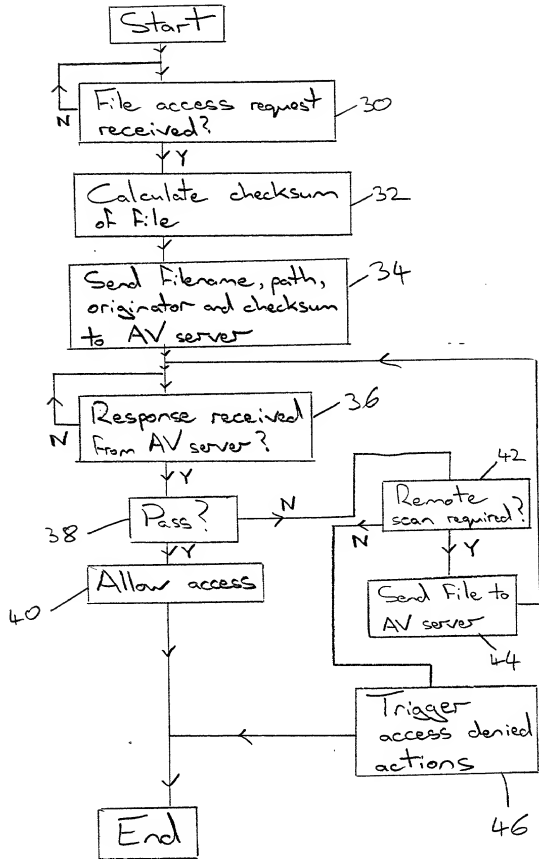 Start
File access request
received?
30
N
Y
Calculate checksum
of file
32
Send Filename, path,
originator and checksum
to AV server
34
Response received
from AV server?
36
N
Y
Pass?
38
N
Y
Remote
scan required?
42
N
Y
Allow access
40
Send File to
AV server
44
Trigger
access denied
actions
46
End